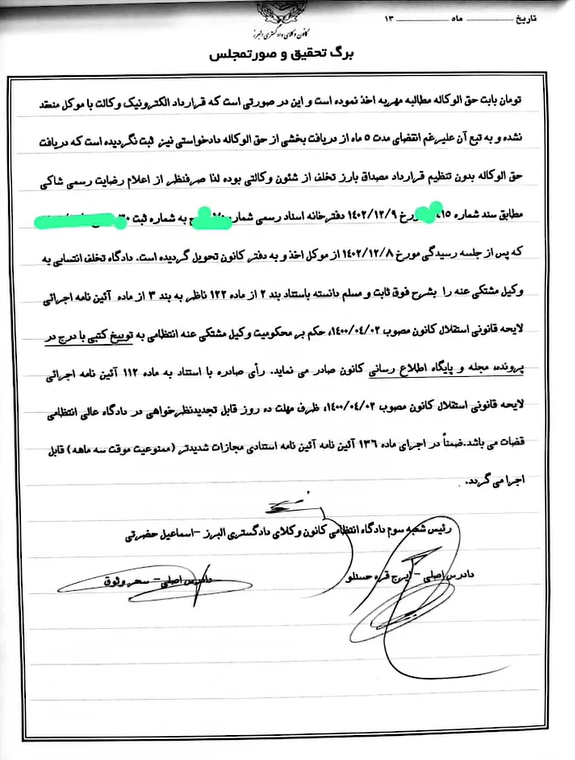 تاریخ ــــــــــ ماه ــــــــــ ۱۳
کانون وکلای دادگستری البرز
برگ تحقیق و صورتمجلس
تومان بابت حق الوکاله مطالبه مهریه اخذ نموده است و این در صورتی است که قرارداد الکترونیک وکالت با موکل منعقد
نشده و به تبع آن علیرغم انقضای مدت ۵ ماه از دریافت بخشی از حق الوکاله دادخواستی نیز ثبت نگردیده است که دریافت
حق الوکاله بدون تنظیم قرارداد مصداق بارز تخلف از شئون وکالتی بوده لذا صرفنظر از اعلام رضایت رسمی شاکی
مطابق سند شماره ۱۵ مورخ ۱۴۰۲/۱۲/۹ دفترخانه اسناد رسمی شماره به شماره ثبت
که پس از جلسه رسیدگی مورخ ۱۴۰۲/۱۲/۸ از موکل اخذ و به دفتر کانون تحویل گردیده است. دادگاه تخلف انتسابی به
وکیل مشتکی عنه را بشرح فوق ثابت و مسلم دانسته باستناد بند ۲ از ماده ۱۲۲ ناظر به بند ۳ از ماده آئین نامه اجرائی
لایحه قانونی استقلال کانون مصوب ۱۴۰۰/۰۴/۰۲، حکم بر محکومیت وکیل مشتکی عنه انتظامی به توبیخ کتبی با درج در
پرونده، مجله و پایگاه اطلاع رسانی کانون صادر می نماید. رأی صادره با استناد به ماده ۱۱۲ آئین نامه اجرائی
لایحه قانونی استقلال کانون مصوب ۱۴۰۰/۰۴/۰۲، ظرف مهلت ده روز قابل تجدیدنظرخواهی در دادگاه عالی انتظامی
قضات می باشد.ضمناً در اجرای ماده ۱۳۶ آئین نامه آئین نامه استنادی مجازات شدیدتر (ممنوعیت موقت سه ماهه) قابل
اجرا می گردد.
رئیس شعبه سوم دادگاه انتظامی کانون وکلای دادگستری البرز -اسماعیل حضرتی
دادرس اصلی - ایرج قره حسنلو
دادرس اصلی - سحر وثوق